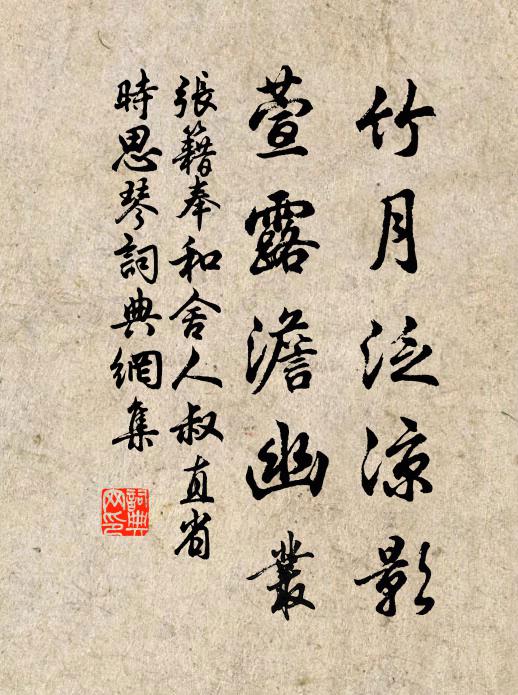 竹月泛涼影
萱露澹幽叢
張籍奉和舍人叔直省
時思琴詞典網集
詞典
网印